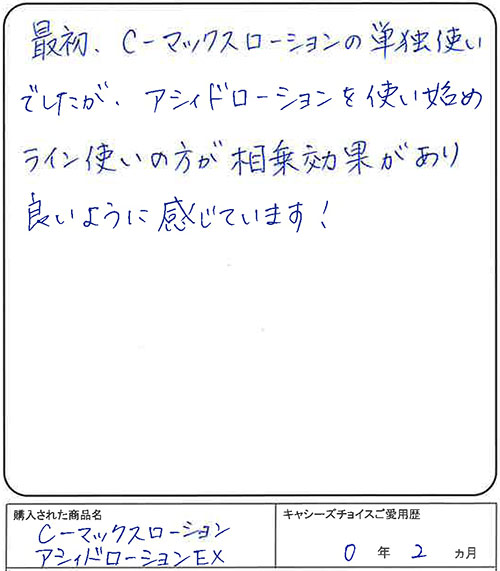 最初、C-マックスローションの単独使い
でしたが、アシィドローションを使い始め
ライン使いの方が相乗効果があり
良いように感じています!
購入された商品名
C-マックスローション
アシィドローションEX
キャシーズチョイスご愛用歴
0年2ヵ月